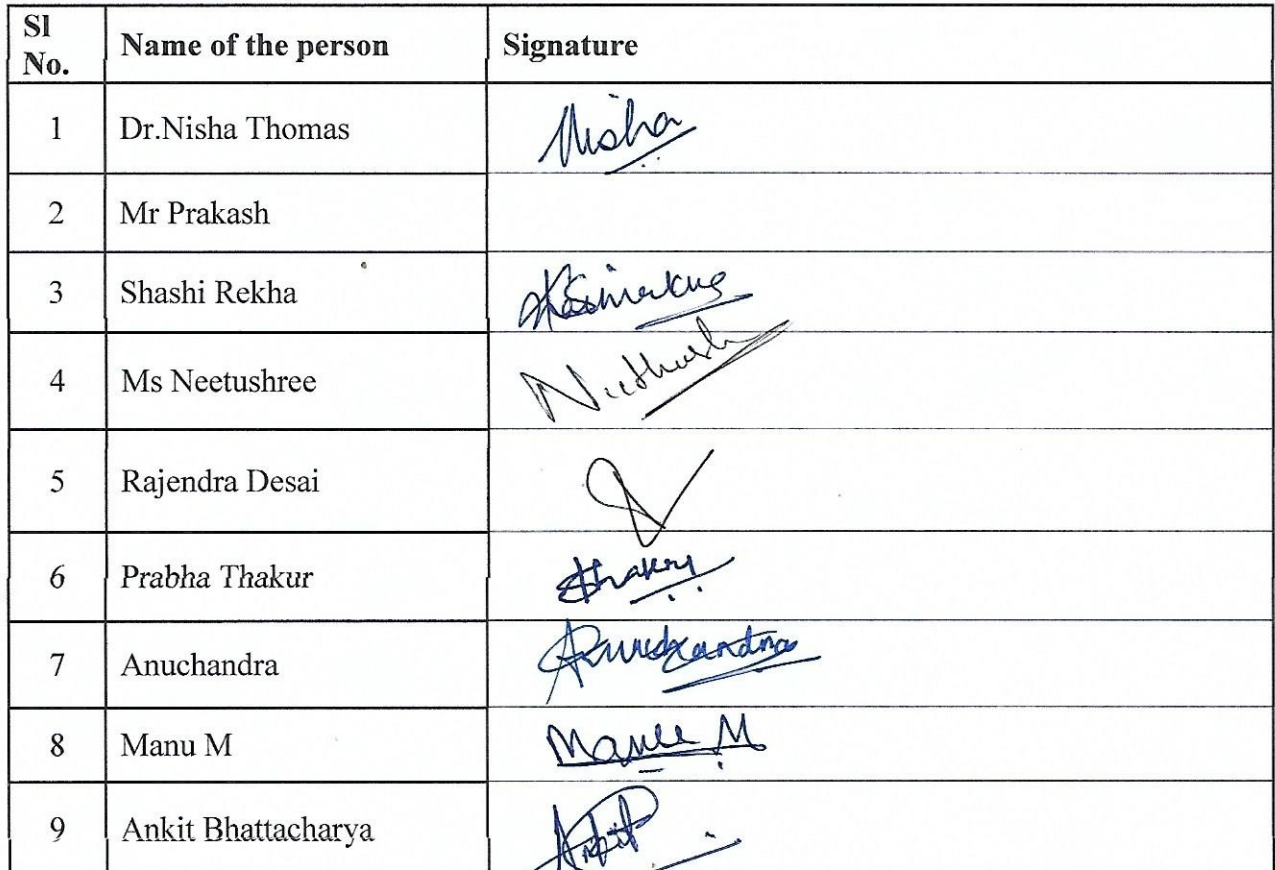 Sl No. Name of the person Signature
1 Dr.Nisha Thomas Nisha
2 Mr Prakash
3 Shashi Rekha
4 Ms Neetushree
5 Rajendra Desai
6 Prabha Thakur Thakur
7 Anuchandra Anuchandra
8 Manu M Manu M
9 Ankit Bhattacharya Ankit